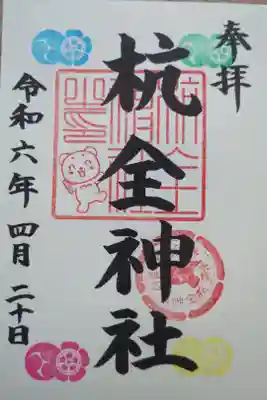 奉拝
杭全神社
令和六年 四月 二十日